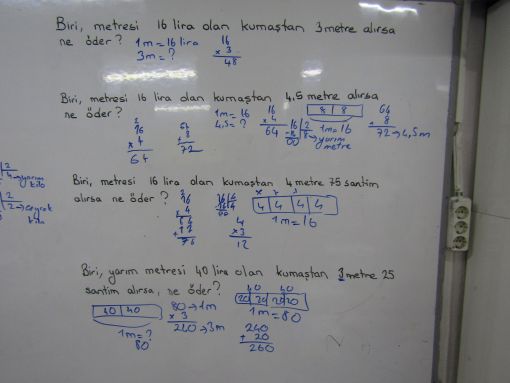 Biri, metresi 16 lira olan kumaştan 3 metre alırsa
ne öder? 1m = 16 lira 16
3m = ? x 3
48
Biri, metresi 16 lira olan kumaştan 4,5 metre alırsa
ne öder? 1m = 16 16 8 8 64
4,5 = ? x 4 16 2 1m = 16 + 8
16 64 64 -8 8 → yarım 72 → 4,5m
x 4 + 8 00 metre
64 72
2
4 → yarım
kilo
2
2 → çeyrek
kilo
Biri, metresi 16 lira olan kumaştan 4 metre 75 santim
alırsa ne öder? 16 16 4 4 4 4 4
x 4 4 1m = 16
64 00 x 3
+ 12 12
76
Biri, yarım metresi 40 lira olan kumaştan 3 metre 25
santim alırsa, ne öder? 40 40
40 40 80 → 1m 20 20 20 20
x 3 1m = 80
1m = ? 240 → 3m 240
80 + 20
260